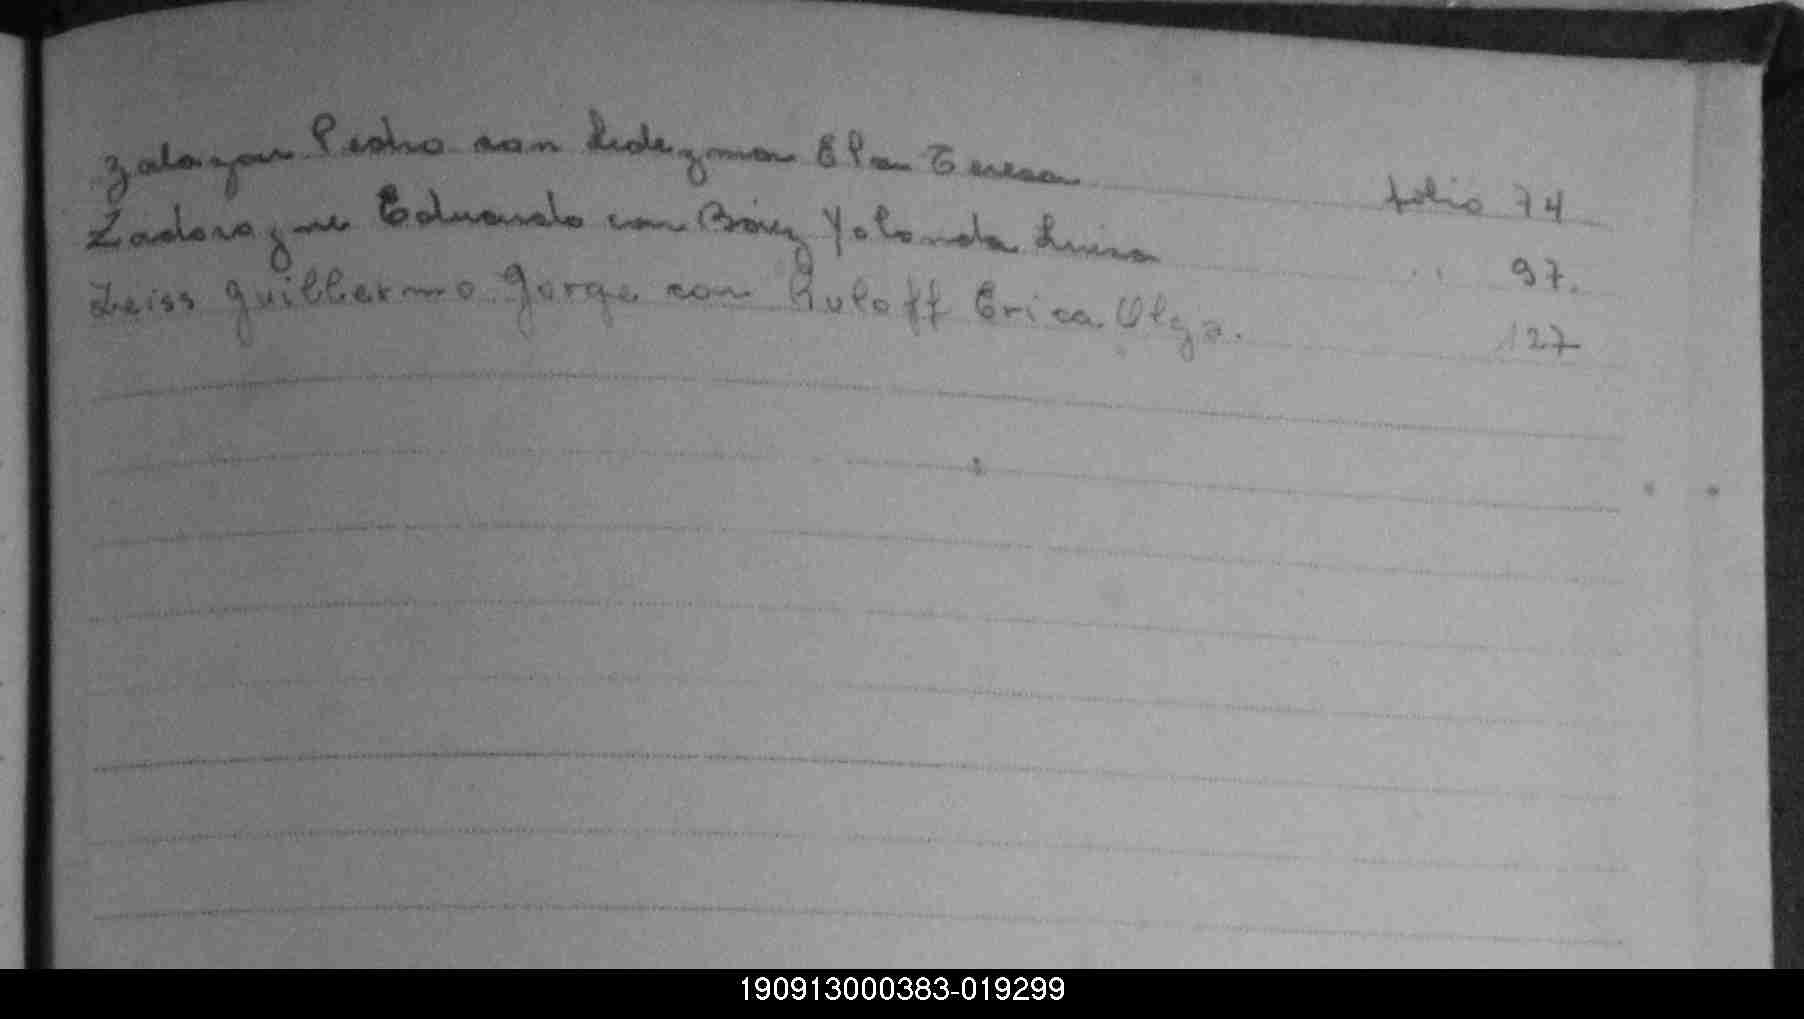 Zalazar Pedro con Ledezma Elsa Teresa folio 74
Zadorozne Eduardo con Báez Yolanda Luisa " 97.
Zeiss Guillermo Jorge con Ruloff Erica Olga. 127
190913000383-019299